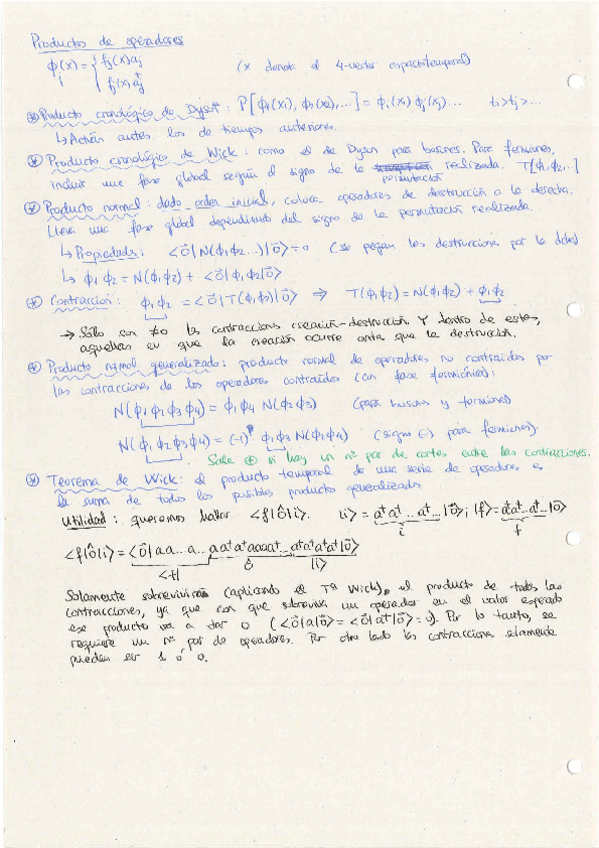 Productos de operadores
ϕᵢ(x) = { fⱼ(x) aⱼ    (x denota el 4-vector espaciotemporal)
fⱼ(x) aⱼ†
⊛ Producto cronológico de Dyson: P[ϕ₁(x₁), ϕ₂(x₂),...] = ϕᵢ(xᵢ) ϕⱼ(xⱼ)... tᵢ>tⱼ>...
↳ Actúan antes los de tiempos anteriores.
⊛ Producto cronológico de Wick: como el de Dyson para bosones. Para fermiones,
incluir una fase global según el signo de la permutación realizada. T[ϕ₁ϕ₂...]
⊛ Producto normal: dado orden inicial, coloca operadores de destrucción a la derecha.
Lleva una fase global dependiendo del signo de la permutación realizada.
↳ Propiedades: <0|N(ϕ₁ϕ₂...)|0> = 0 (se pegan las destrucciones por la dcha)
↳ ϕ₁ϕ₂ = N(ϕ₁ϕ₂) + <0|ϕ₁ϕ₂|0>
⊛ Contracción: ϕ₁ϕ₂ = <0|T(ϕ₁ϕ₂)|0> ⇒ T(ϕ₁ϕ₂) = N(ϕ₁ϕ₂) + ϕ₁ϕ₂
→ Sólo son ≠0 las contracciones creación-destrucción. Y dentro de estas,
aquellas en que la creación ocurre antes que la destrucción.
⊛ Producto normal generalizado: producto normal de operadores no contraídos por
las contracciones de los operadores contraídos (con fase fermiónica):
N(ϕ₁ϕ₂ϕ₃ϕ₄) = ϕ₁ϕ₄ N(ϕ₂ϕ₃) (para bosones y fermiones)
N(ϕ₁ϕ₂ϕ₃ϕ₄) = (-1)ᴾ ϕ₁ϕ₃ N(ϕ₂ϕ₄) (signo (-) para fermiones).
Sale ⊕ si hay un nº par de cortes entre las contracciones.
⊛ Teorema de Wick: el producto temporal de una serie de operadores es
la suma de todos los posibles productos generalizados
Utilidad: queremos hallar <f|ô|i>. |i> = a†a†...a†...|0>; |f> = a†a†...a†...|0>
i f
<f|ô|i> = <0|aa...a...aa†a†aaaa†...a†a†a†a†|0>
<f| ô |i>
Solamente sobrevivirá (aplicando el Tª Wick), el producto de todas las
contracciones, ya que con que sobreviva un operador en el valor esperado
ese producto va a dar 0 (<0|a|0> = <0|a†|0> = 0). Por lo tanto, se
requiere un nº par de operadores. Por otro lado las contracciones solamente
pueden ser 1 ó 0.